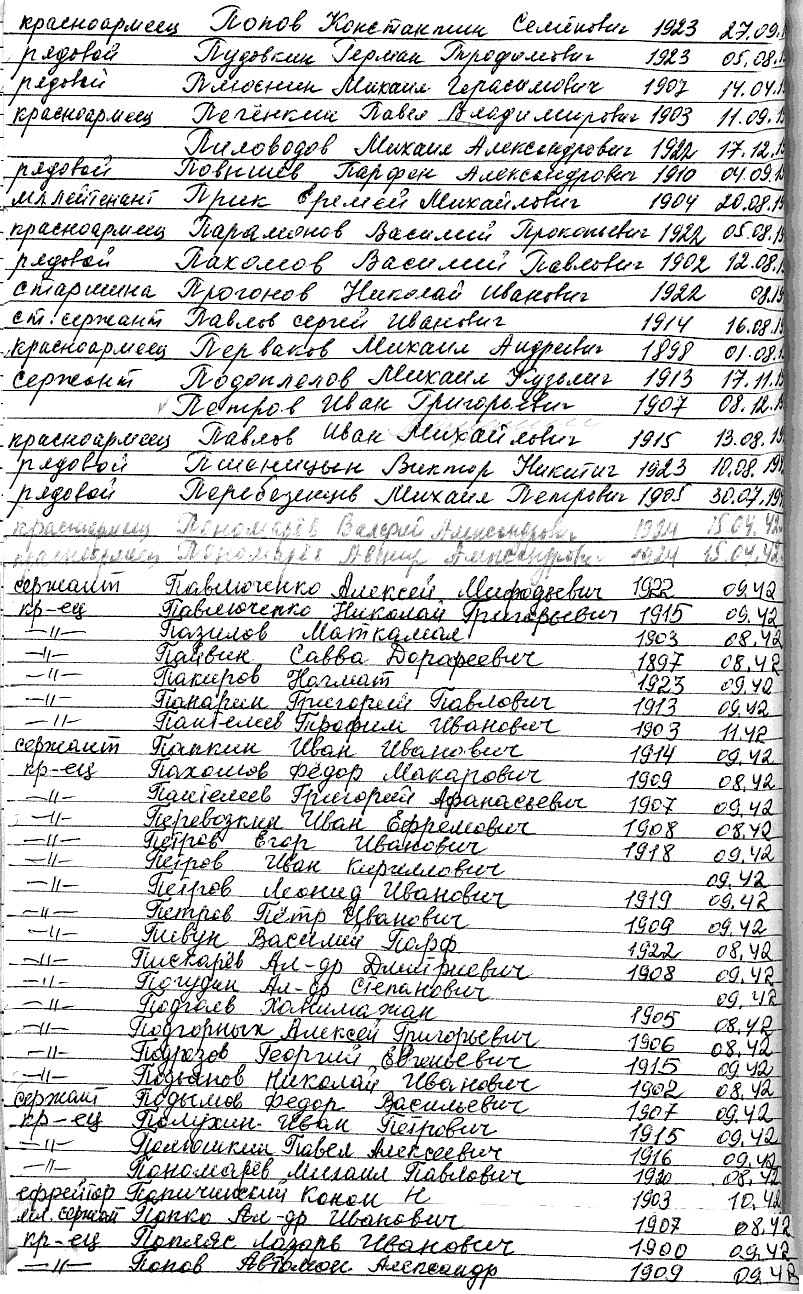 красноармеец Попов Константин Семёнович 1923 27.09.
рядовой Пудовкин Герман Трофимович 1923 05.08.
рядовой Плюснин Михаил Герасимович 1907 14.04.
красноармеец Печёнкин Павел Владимирович 1903 11.09.
Пиловодов Михаил Александрович 1922 17.12.
рядовой Повышев Парфен Александрович 1910 04.09.
мл.лейтенант Прик Еремей Михайлович 1904 20.08.
красноармеец Парамонов Василий Прокопьевич 1922 05.08.
рядовой Пахомов Василий Павлович 1902 12.08.
старшина Прогонов Николай Иванович 1922 08.
ст. сержант Павлов сергей Иванович 1914 16.08.
красноармеец Перваков Михаил Андреевич 1898 01.08.
сержант Подоплелов Михаил Кузьмич 1913 17.11.
Петров Иван Григорьевич 1907 08.12.
красноармеец Павлов Иван Михайлович 1915 13.08.
рядовой Пшеницын Виктор Никитич 1923 10.08.
рядовой Михаил Петрович 1905 30.07.
красноармеец Пономарёв Валерий Александрович 1924 15.04.42
красноармеец Пономарёв Александрович 1924 15.04.42
сержант Павлюченко Алексей Мифодьевич 1922 09.42
кр-ец Павлюченко Николай Григорьевич 1915 09.42
—"— Пазилов Маткамал 1903 08.42
—"— Пайвин Савва Дорофеевич 1897 08.42
—"— Пакиров Нагмат 1923 09.42
—"— Панарин Григорий Павлович 1913 09.42
—"— Пантелеев Трофим Иванович 1903 11.42
сержант Папкин Иван Иванович 1914 09.42
кр-ец Пахомов Фёдор Макарович 1909 08.42
—"— Пантелеев Григорий Афанасьевич 1907 09.42
—"— Перевозкин Иван Ефремович 1908 08.42
—"— Петров Егор Иванович 1918 09.42
—"— Петров Иван Кириллович 09.42
—"— Петров Леонид Иванович 1919 09.42
—"— Петров Пётр Иванович 1909 09.42
—"— Пивун Василий Парф 1922 08.42
—"— Пискарёв Ал-др Дмитриевич 1908 09.42
—"— Погудин Ал-др Степанович 09.42
—"— Подгаев Ханимажан 1905 08.42
—"— Подгорных Алексей Григорьевич 1906 08.42
—"— Георгий Евгеньевич 1915 09.42
—"— Подьянов Николай Иванович 1902 08.42
сержант Подымов Федор Васильевич 1907 09.42
кр-ец Полухин Иван Петрович 1915 09.42
—"— Павел Алексеевич 1916 09.42
—"— Пономарёв Михаил Павлович 1920 08.42
ефрейтор Попичинский Конон Н 1903 10.42
мл. сержант Попко Ал-др Иванович 1907 08.42
кр-ец Попляс Лазарь Иванович 1900 09.42
—"— Попов Автомон Александр 1909 09.42